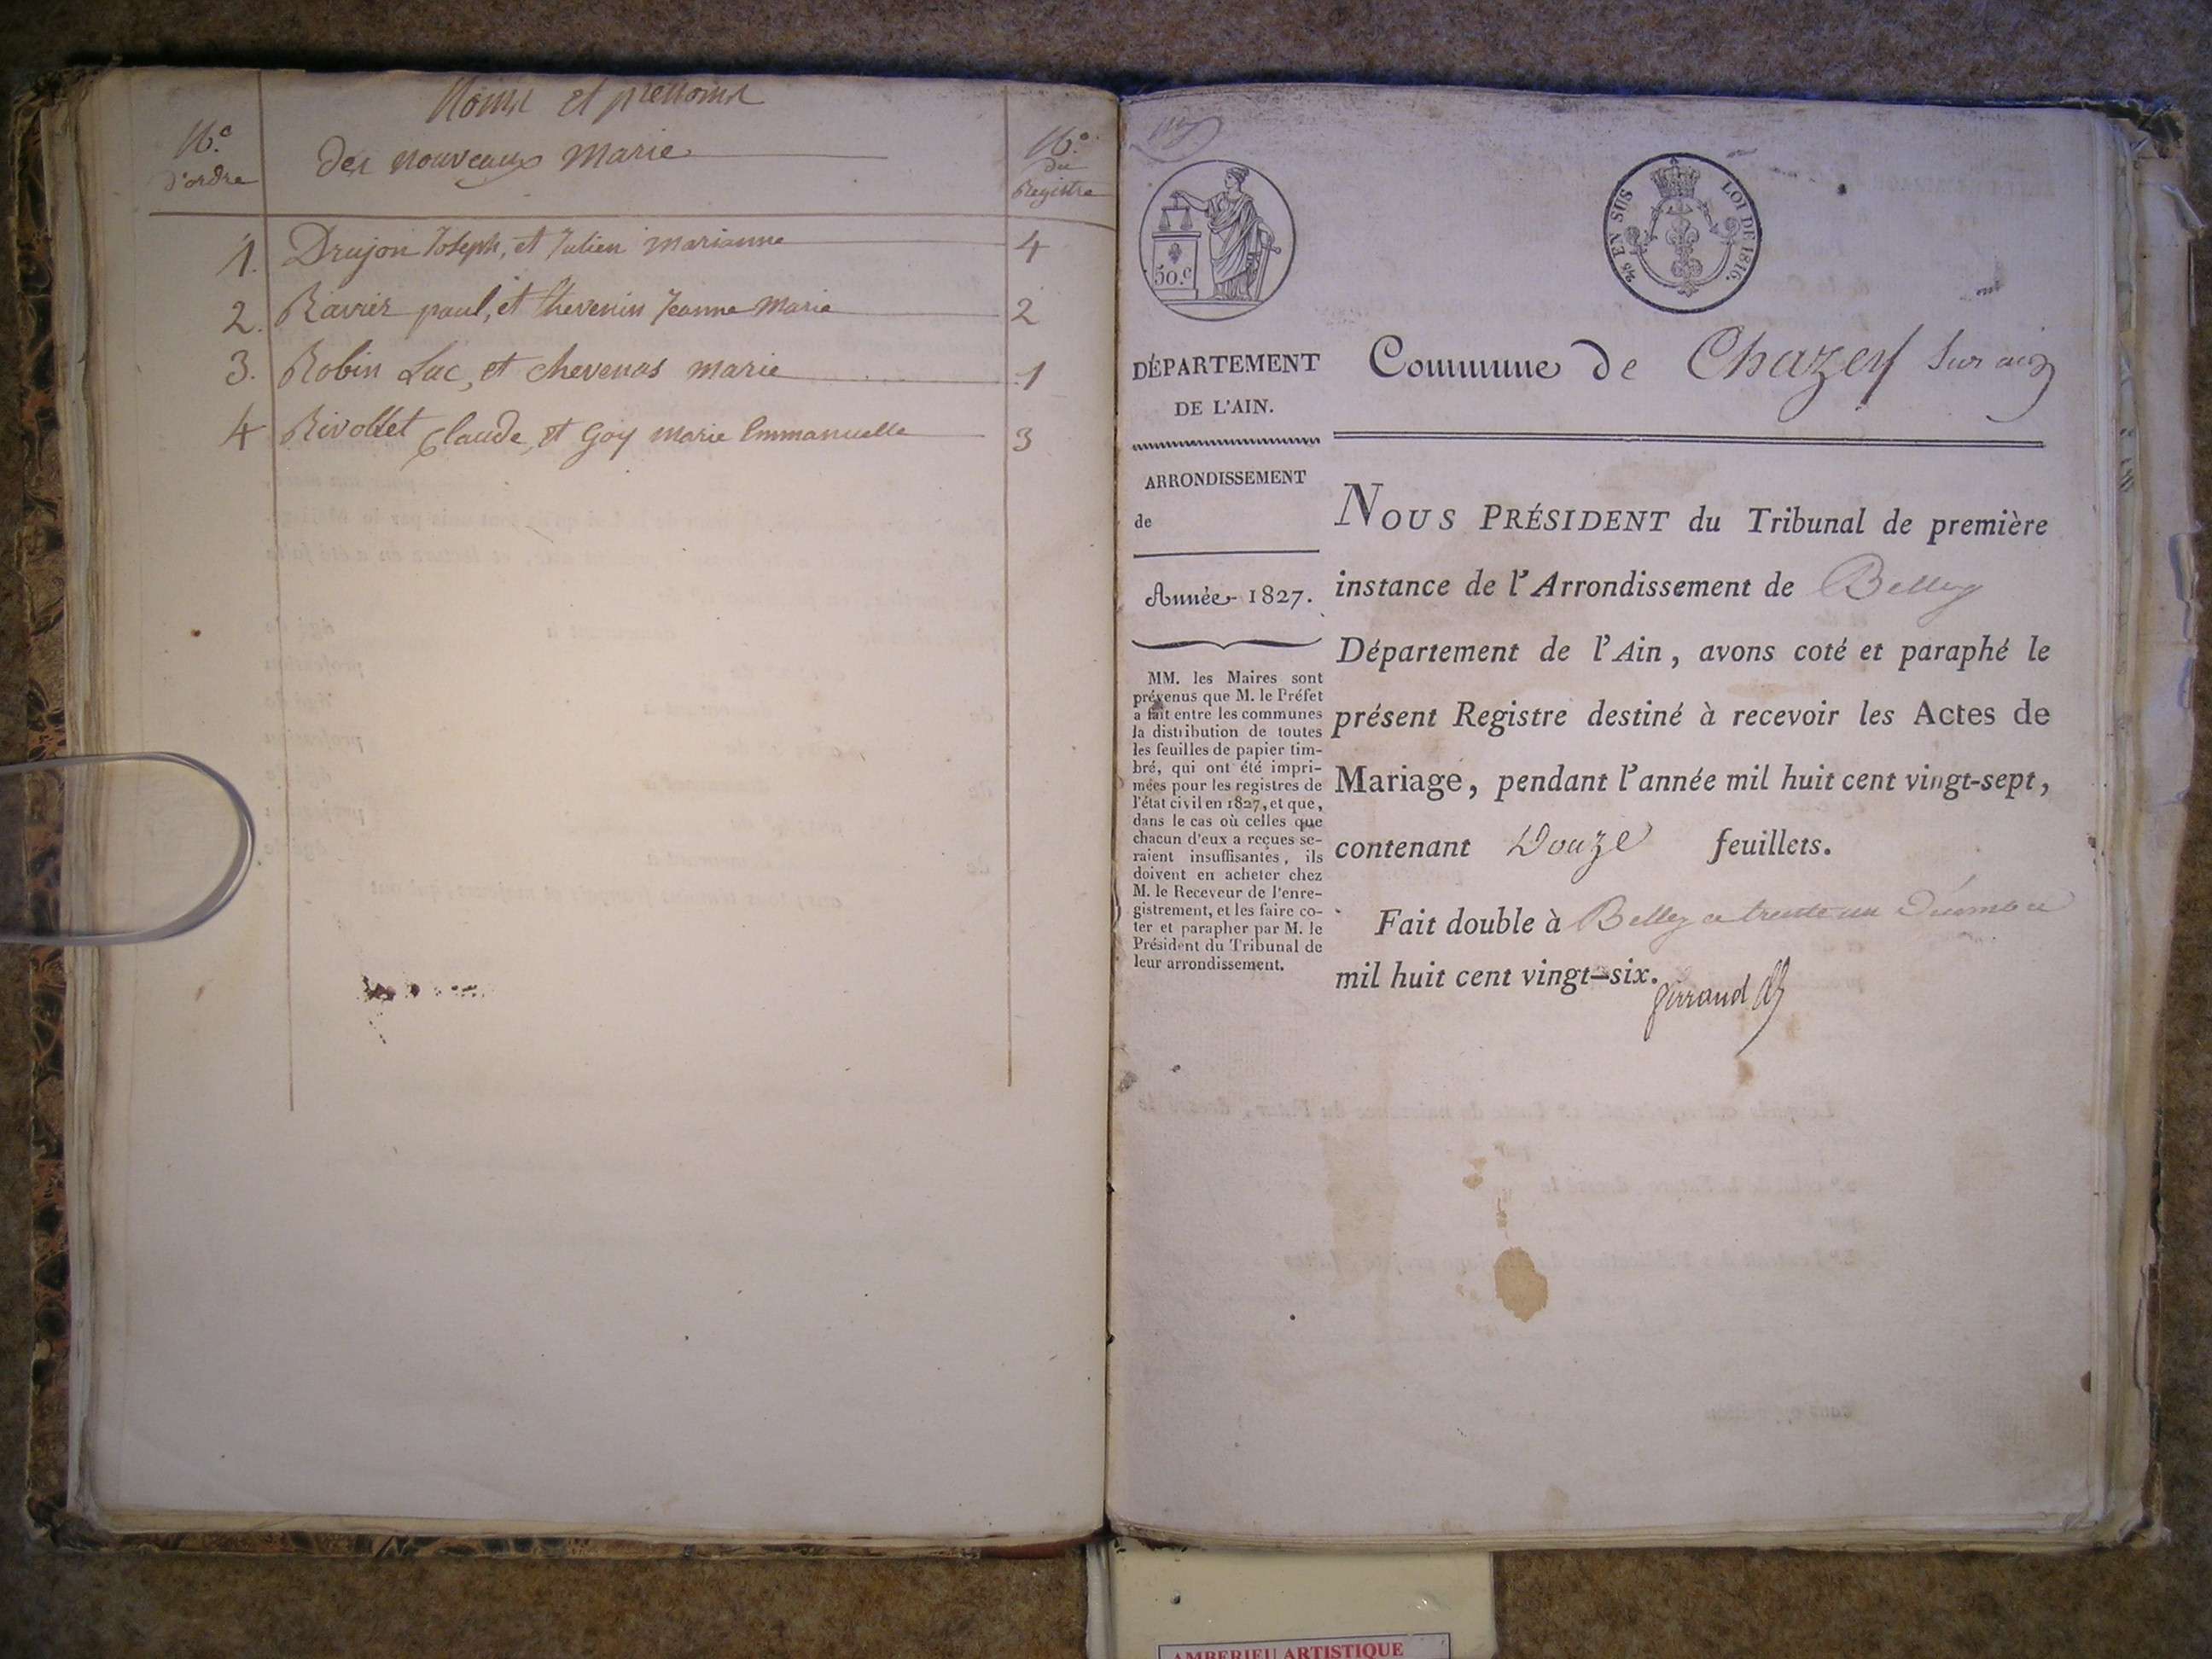 Noms et prenoms
des nouveaux Marie
N.o
d'ordre
N.o
du
Registre
1. Drujon Joseph, et Julien marianne 4
2. Ravier paul, et thevenin Jeanne Marie 2
3. Robin Luc, et chevenas marie 1
4 Rivollet Claude, et Goy Marie Emmanuelle 3
50.c
EN SUS
LOI DE 1816.
DÉPARTEMENT
DE L'AIN.
ARRONDISSEMENT
de
Année 1827.
MM. les Maires sont
prévenus que M. le Préfet
a fait entre les communes
la distribution de toutes
les feuilles de papier tim-
bré, qui ont été impri-
mées pour les registres de
l'état civil en 1827, et que,
dans le cas où celles que
chacun d'eux a reçues se-
raient insuffisantes, ils
doivent en acheter chez
M. le Receveur de l'enre-
gistrement, et les faire co-
ter et parapher par M. le
Président du Tribunal de
leur arrondissement.
Commune de Chazey Sur ain
NOUS PRÉSIDENT du Tribunal de première
instance de l'Arrondissement de Belley
Département de l'Ain, avons coté et paraphé le
présent Registre destiné à recevoir les Actes de
Mariage, pendant l'année mil huit cent vingt-sept,
contenant Douze feuillets.
Fait double à Belley ce trente un Décembre
mil huit cent vingt-six.
Girraud
AMBERIEU ARTISTIQUE